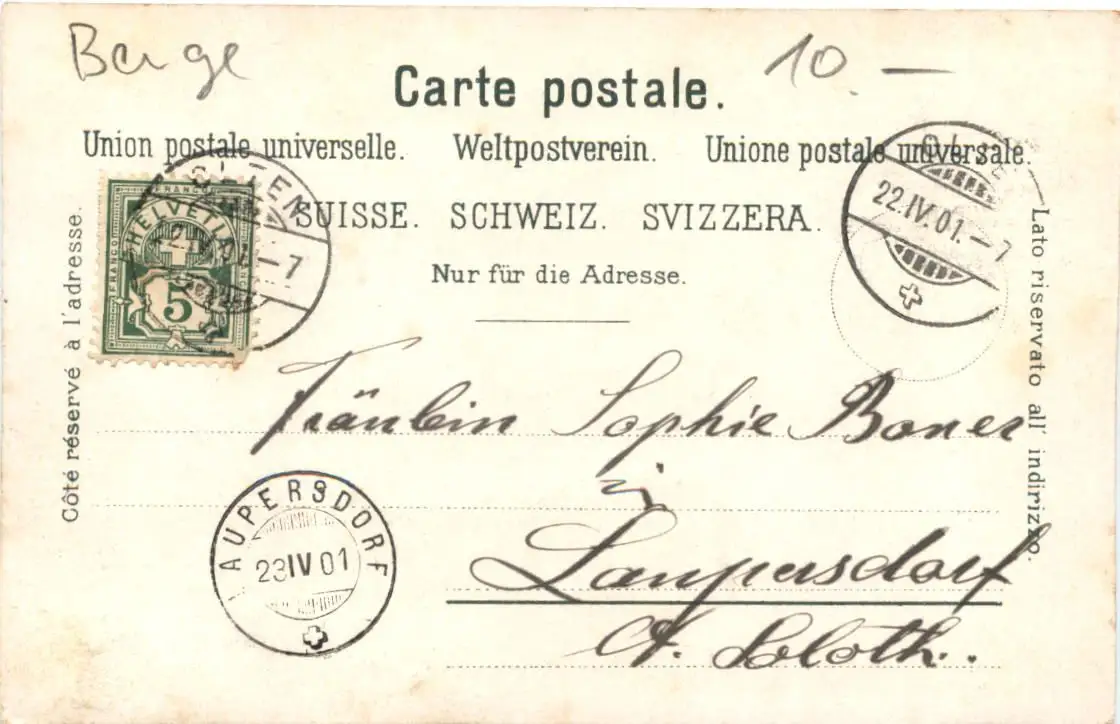 Berge
10.—
Carte postale.
Union postale universelle. Weltpostverein. Unione postale universale.
SUISSE. SCHWEIZ. SVIZZERA.
Nur für die Adresse.
Côté réservé à l'adresse.
Lato riservato all' indirizzo.
FRANCO
FRANCO
HELVETIA
5
OLTEN
–7
OLTE
22.IV.01.–7
Fräulein Sophie Boner
in
Laupersdorf
Ct. Soloth.
AUPERSDORF
23 IV 01